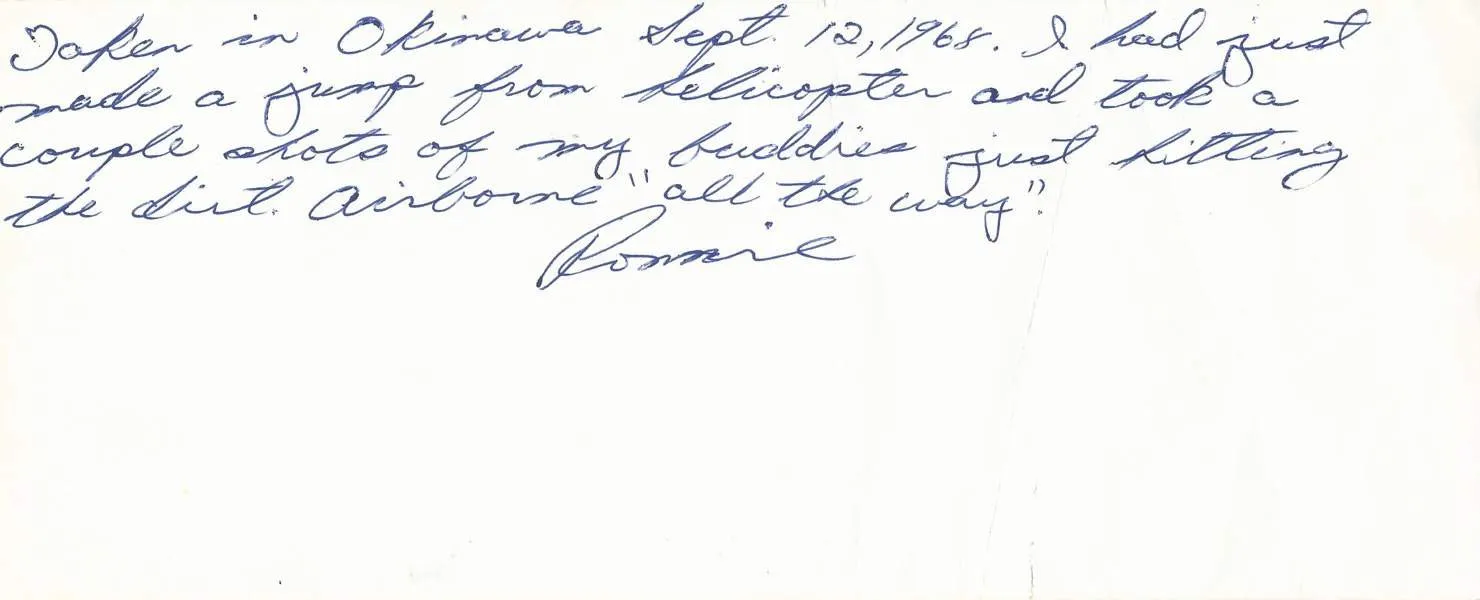 Taken in Okinawa Sept. 12, 1968. I had just
made a jump from helicopter and took a
couple shots of my buddies just hitting
the dirt. Airborne "all the way".
Ronnie